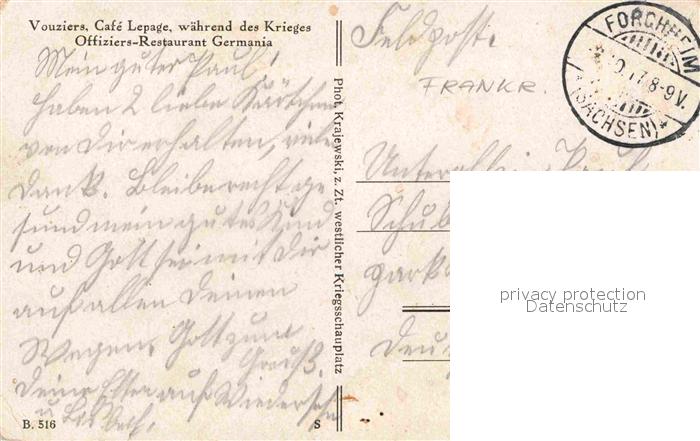 Vouziers, Café Lepage, während des Krieges
Offiziers-Restaurant Germania
Mein guter Paul!
haben 2 liebe Kärtchen
von Dir erhalten, vielen
Dank. Bleibe recht ge
sund mein gutes Kind
und Gott sei mit Dir
auf allen Deinen
Wegen. Gott zum
Gruß.
Deine Elter auf Wiedersehn
u.
B. 516
S
Phot. Krajewski, z. Zt. westlicher Kriegsschauplatz
Feldpost.
FRANKR.
FORCHHEIM
17.8-9V.
(SACHSEN)
Schu
Deu
privacy protection
Datenschutz